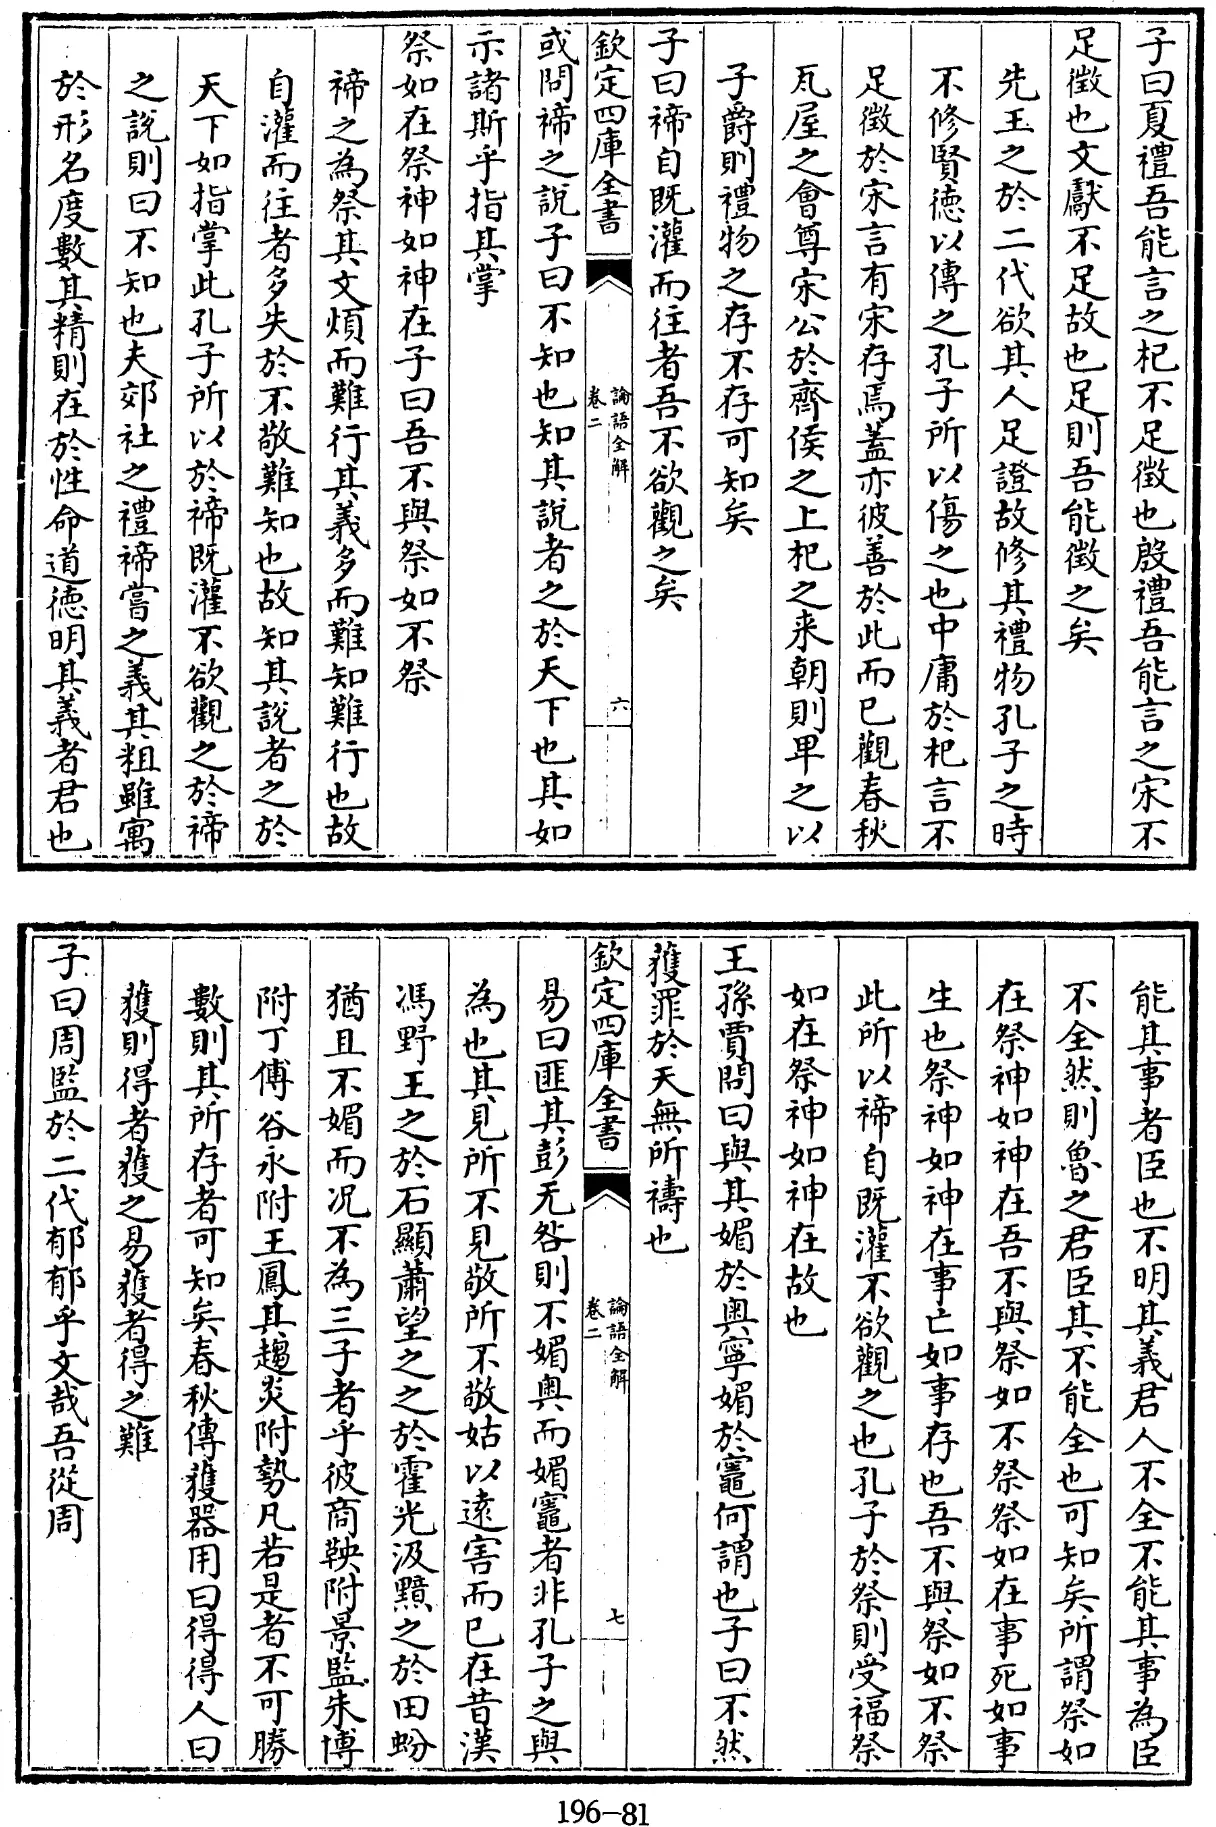 子曰夏禮吾能言之杞不足徵也殷禮吾能言之宋不
足徵也文獻不足故也足則吾能徵之矣
先王之於二代欲其人足證故修其禮物孔子之時
不修賢德以傳之孔子所以傷之也中庸於杞言不
足徵於宋言有宋存焉蓋亦彼善於此而已觀春秋
瓦屋之會尊宋公於齊侯之上杞之来朝則卑之以
子爵則禮物之存不存可知矣
子曰禘自既灌而往者吾不欲觀之矣
欽定四庫全書
論語全解
卷二
六
或問禘之說子曰不知也知其說者之於天下也其如
示諸斯乎指其掌
祭如在祭神如神在子曰吾不與祭如不祭
禘之為祭其文煩而難行其義多而難知難行也故
自灌而往者多失於不敬難知也故知其說者之於
天下如指掌此孔子所以於禘既灌不欲觀之於禘
之說則曰不知也夫郊社之禮禘嘗之義其粗雖寓
於形名度數其精則在於性命道德明其義者君也
能其事者臣也不明其義君人不全不能其事為臣
不全然則魯之君臣其不能全也可知矣所謂祭如
在祭神如神在吾不與祭如不祭祭如在事死如事
生也祭神如神在事亡如事存也吾不與祭如不祭
此所以禘自既灌不欲觀之也孔子於祭則受福祭
如在祭神如神在故也
王孫賈問曰與其媚於奧寧媚於竈何謂也子曰不然
獲罪於天無所禱也
欽定四庫全書
論語全解
卷二
七
易曰匪其彭无咎則不媚奧而媚竈者非孔子之與
為也其見所不見敬所不敬姑以遠害而已在昔漢
馮野王之於石顯蕭望之之於霍光汲黯之於田蚡
猶且不媚而况不為三子者乎彼商鞅附景監朱博
附丁傅谷永附王鳳其趨炎附勢凡若是者不可勝
數則其所存者可知矣春秋傳獲器用曰得得人曰
獲則得者獲之易獲者得之難
子曰周監於二代郁郁乎文哉吾從周
196-81